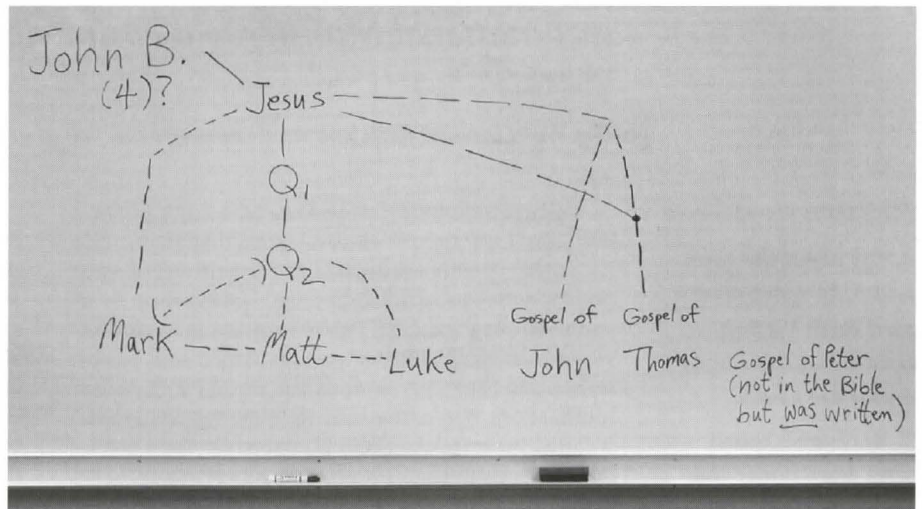 John B.
(4)?
Jesus
Q1
Q2
Mark
Matt
Luke
Gospel of
John
Gospel of
Thomas
Gospel of Peter
(not in the Bible
but was written)